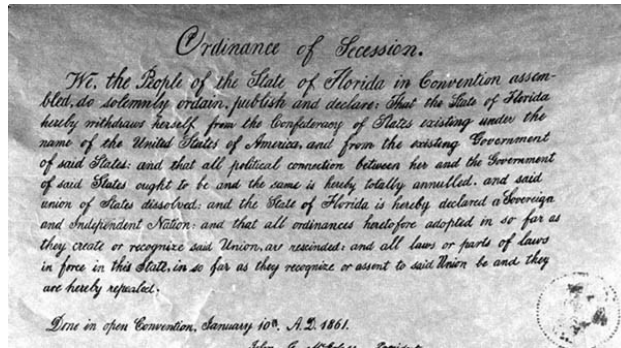 Ordinance of Secession.
We, the People of the State of Florida in Convention assem-
bled, do solemnly ordain, publish and declare: That the State of Florida
hereby withdraws herself from the Confederacy of States existing under the
name of the United States of America, and from the existing Government
of said States: and that all political connection between her and the Government
of said States ought to be and the same is hereby totally annulled, and said
union of States dissolved: and the State of Florida is hereby declared a Sovereign
and Independent Nation: and that all ordinances heretofore adopted in so far as
they create or recognize said Union, are rescinded: and all laws or parts of laws
in force in this State, in so far as they recognize or assent to said Union be and they
are hereby repealed.
Done in open Convention, January 10th, A.D. 1861.
John C. McGehee, President